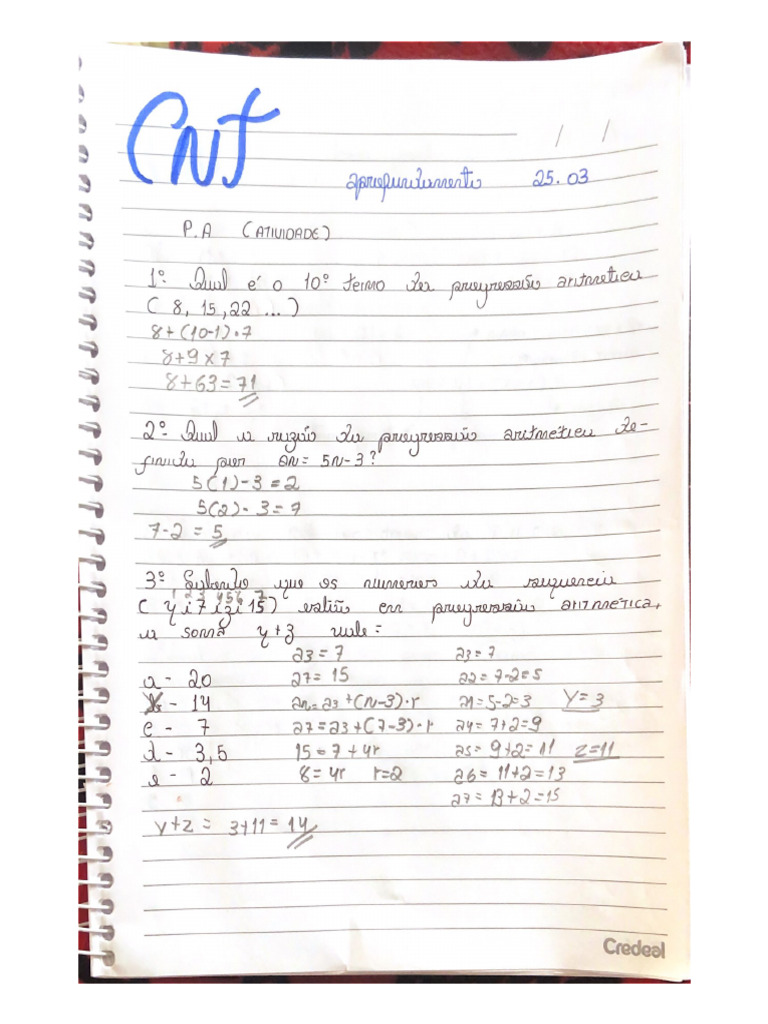 CNT
aprofundamento 25.03
/ /
P.A (ATIVIDADE)
1º. Qual é o 10º termo da progressão aritmetica
( 8, 15, 22 ... )
8+(10-1)·7
8+9x7
8+63=71
2º. Qual a razão da progressão aritmetica de-
finida por an= 5n-3?
5(1)-3=2
5(2)-3=7
7-2=5
3º. Sabendo que os numeros da sequencia
1 2 3 4 5 6 7
( y i 7 i z i 15) estão em progressão aritmética,
a soma y+z vale=
a - 20
b - 14
c - 7
d - 3,5
e - 2
a3=7
a7=15
an=a3+(n-3)·r
a7=a3+(7-3)·r
15=7+4r
8=4r r=2
a3=7
a2=7-2=5
a1=5-2=3 Y=3
a4=7+2=9
a5=9+2=11 z=11
a6=11+2=13
a7=13+2=15
y+z= 3+11=14
Credeal